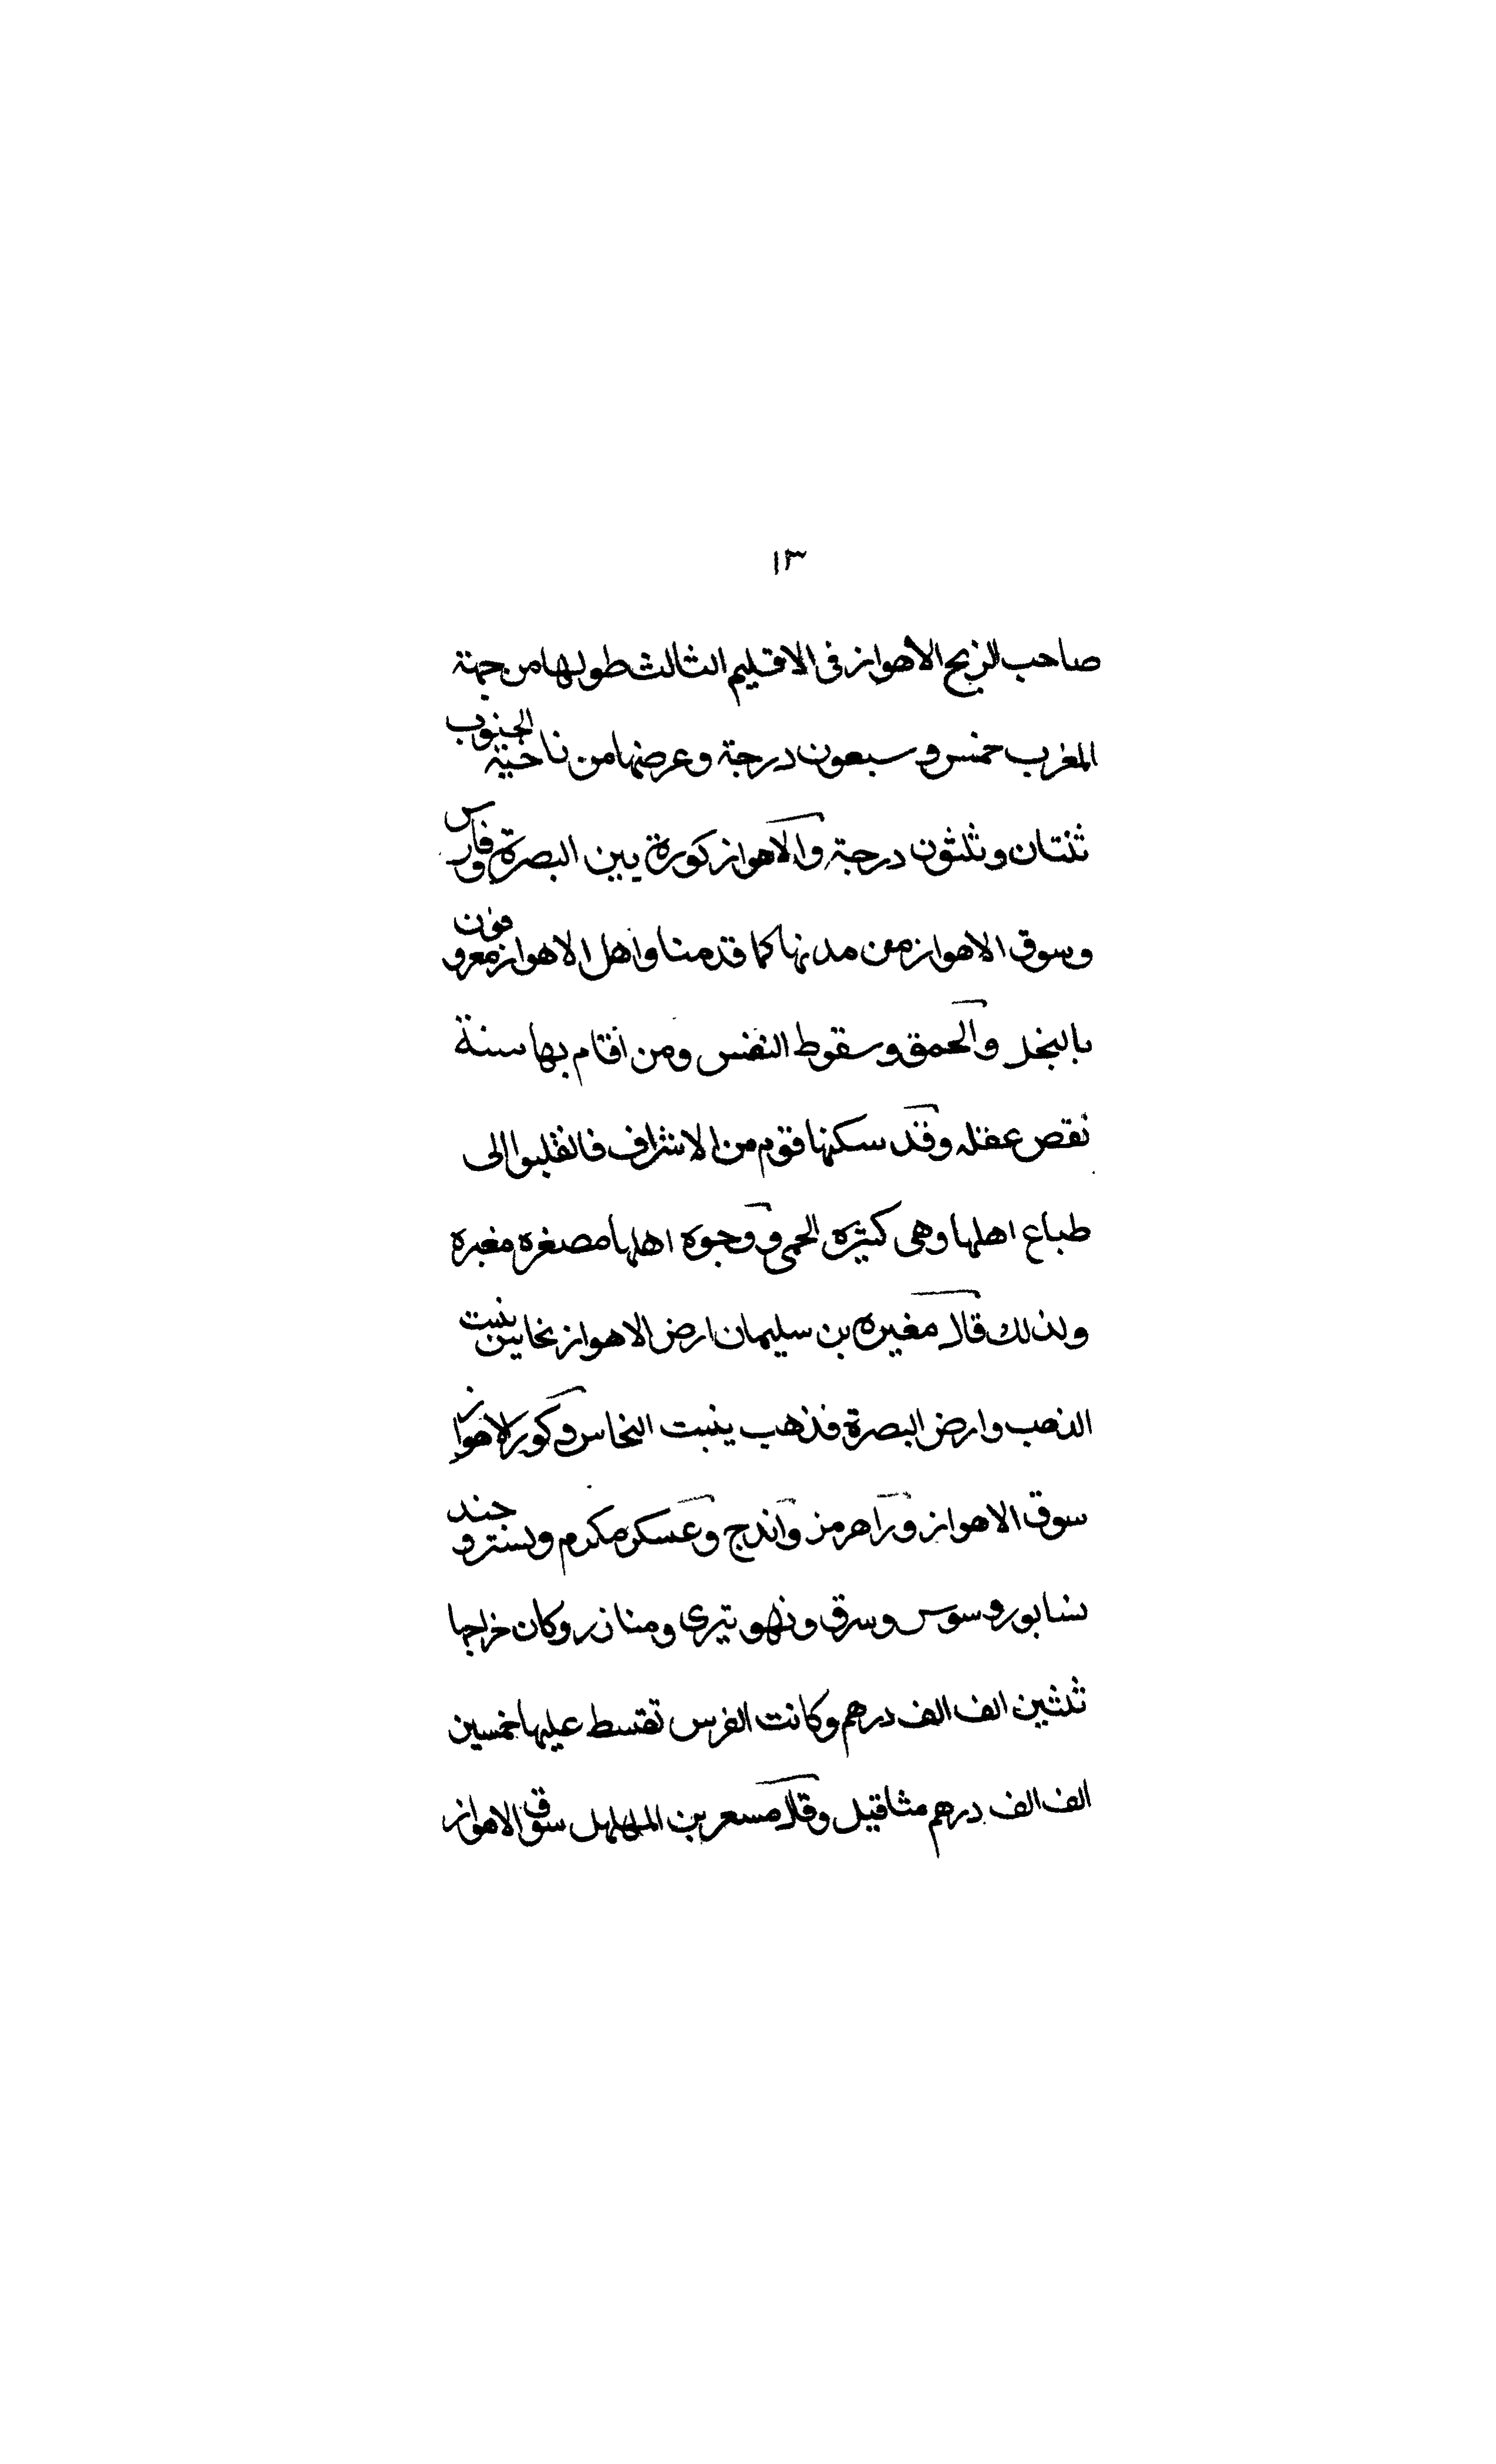 ١٣
صاحب الزيج الاهواز فى الاقليم الثالث طولها من جهة
المغرب خمس و سبعون درجة وعرضها من ناحية الجنوب
ثنتان وثلثون درجة والاهواز كورة بين البصرة وفارس
وسوق الاهواز من مدنها كما قدمنا واهل الاهواز معروفون
بالبخل والحمق وسقوط النفس ومن اقام بها سنة
نقص عقله وقد سكنها قوم من الاشراف فانقلبوا الى
طباع اهلها وهى كثيرة الحمى ووجوه اهلها مصفره مغبره
ولذلك قال مغيره بن سليمان ارض الاهواز نحاس ينبت
الذهب وارض البصرة فذهب ينبت النحاس وكور الاهواز
سوق الاهواز وراهرمز واندج وعسكر مكرم وتستر وجند
نسابور وسوس وسرق ونهو تيرى ومناذر وكان خراجها
ثلثين الف الف درهم وكانت الفرس تقسط عليها خمسين
الف الف درهم مثاقيل وقال مسعر بن المهلهل سوق الاهواز